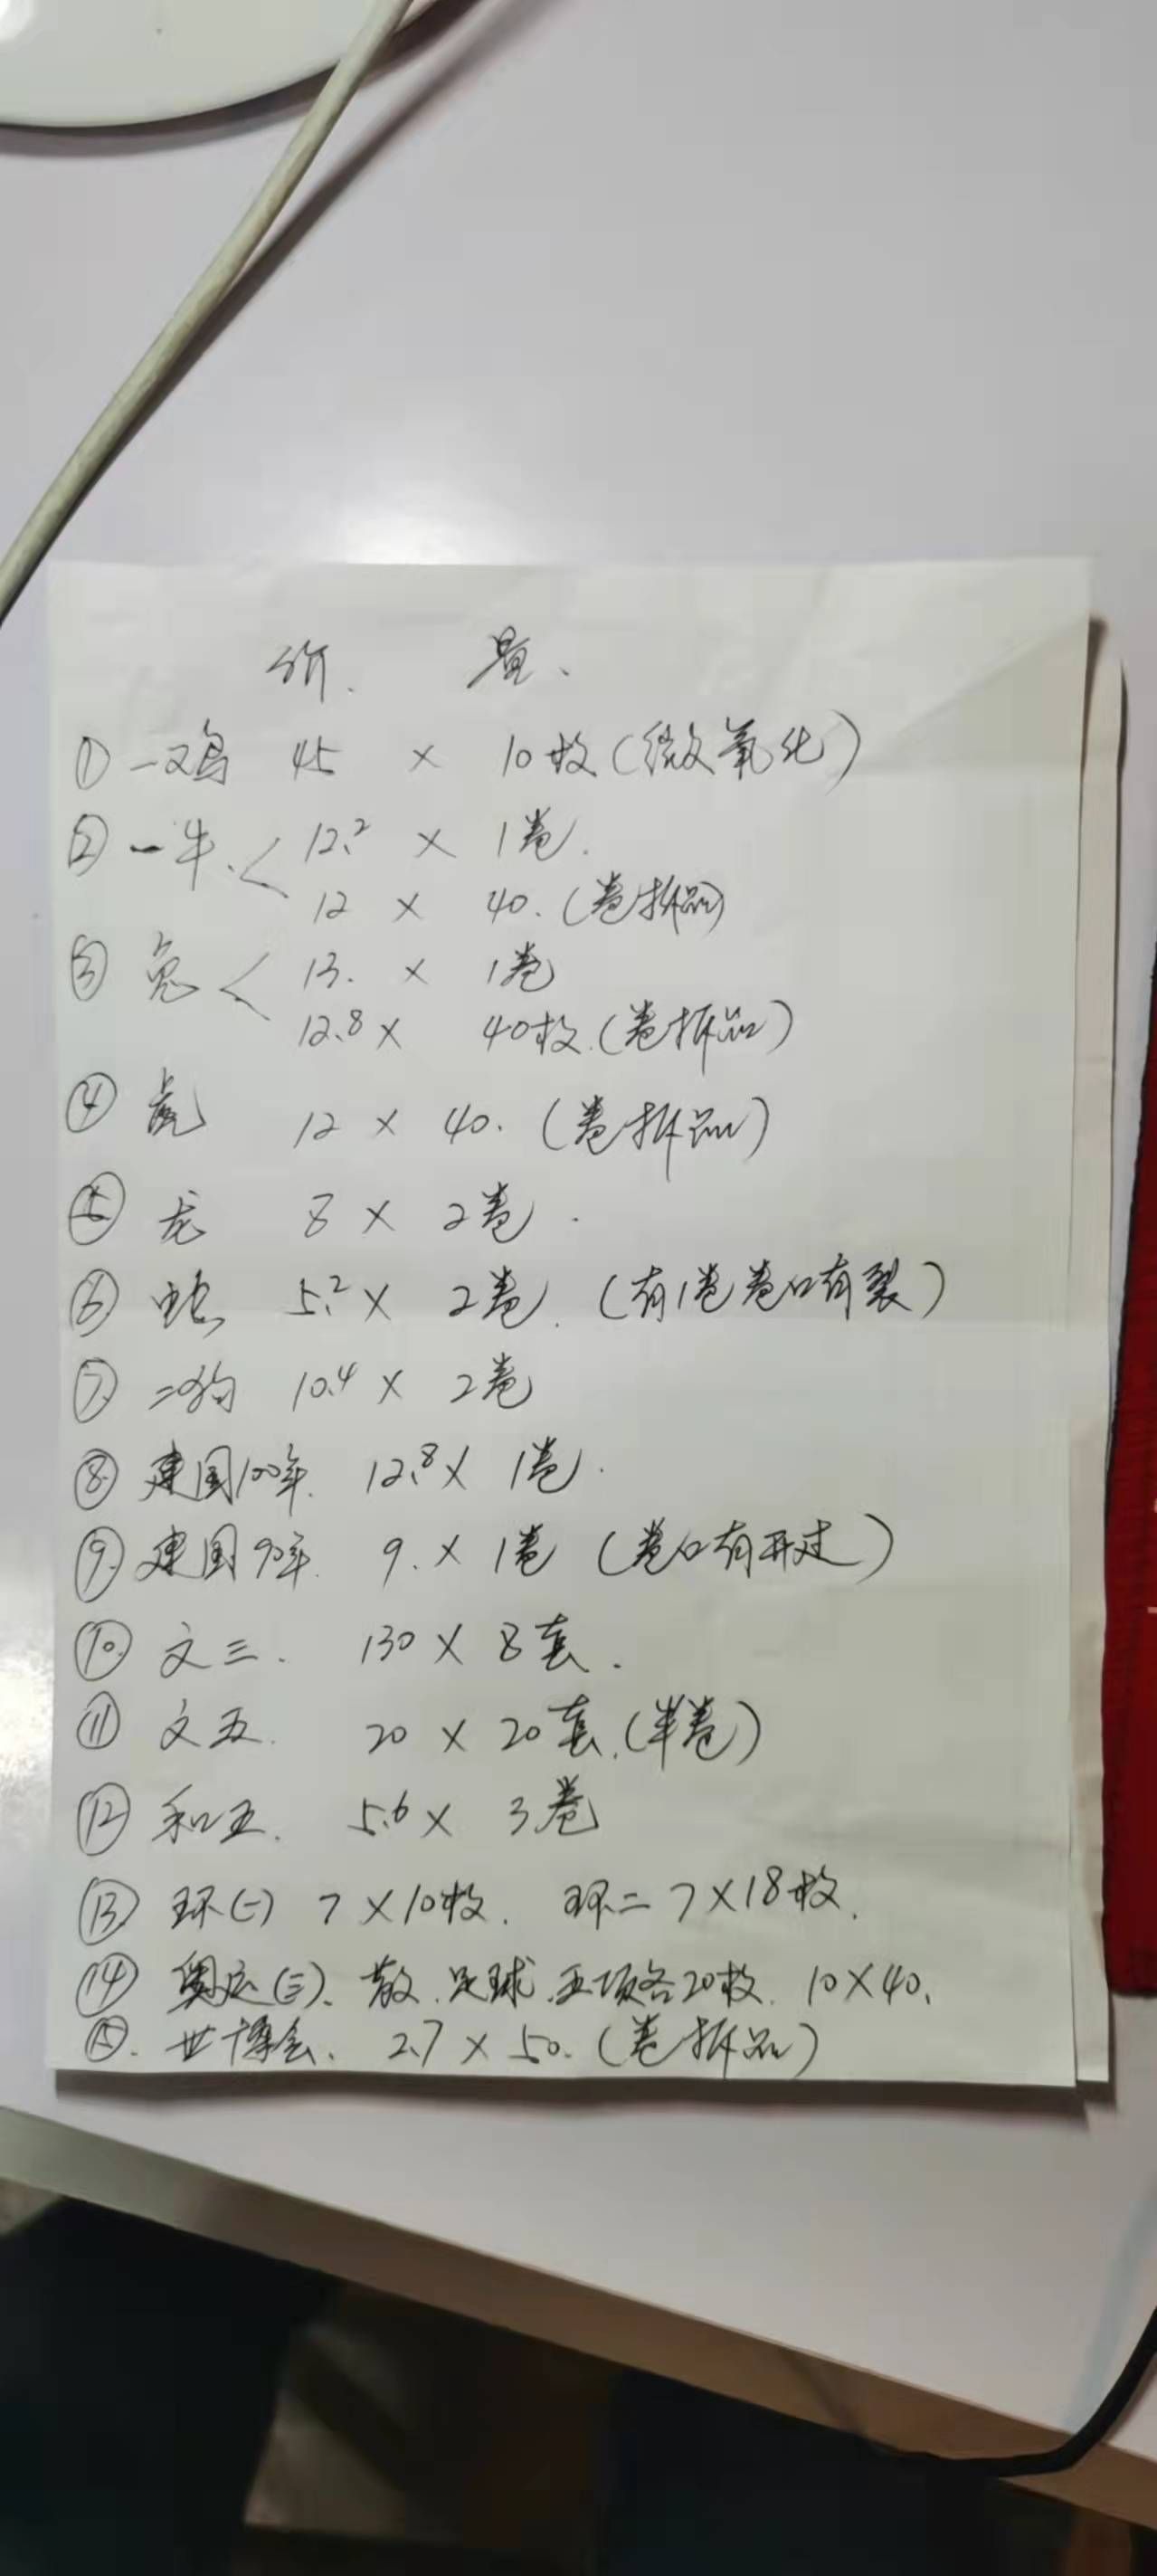 价. 量.
① 一鸡 45 × 10枚(微氧化)
② 一牛.< 12.2 × 1卷.
12 × 40.(卷拆品)
③ 兔< 13. × 1卷
12.8 × 40枚.(卷拆品)
④ 虎 12 × 40.(卷拆品)
⑤ 龙 8 × 2卷.
⑥ 蛇 5.2 × 2卷.(有1卷卷口有裂)
⑦ 二狗 10.4 × 2卷
⑧ 建国100年. 12.8 × 1卷.
⑨ 建国90年. 9. × 1卷(卷口有开过)
⑩ 文三. 130 × 8套.
⑪ 文五. 20 × 20套.(半卷)
⑫ 和五. 5.6 × 3卷
⑬ 环(一) 7×10枚. 环二 7×18枚.
⑭ 奥运(三)、散.足球.五项各20枚. 10×40.
⑮. 世博会. 2.7 × 50.(卷拆品)